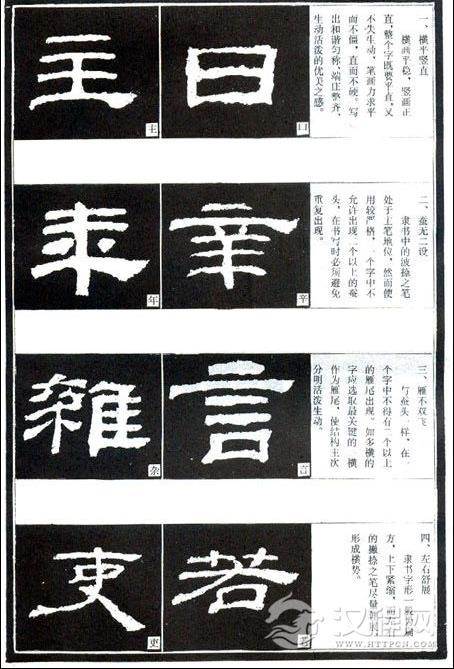 一、横平竖直
横画平稳,竖画正
直,整个字既要平直,又
不失生动,笔画力求平
而不僵,直而不硬。写
出和谐匀称、端庄整齐、
生动活泼的优美之感。
曰
主
主
二、蚕无二设
隶书中的波捺之笔
处于主笔地位,然而使
用较严格,一个字中不
允许出现二个以上的蚕
头,在书写时必须避免
重复出现。
辛
辛
年
年
三、雁不双飞
与蚕头一样,在一
个字中不得有二个以上
的雁尾出现。如多横的
字应选取最关键的一横
作为雁尾,使结构主次
分明活泼生动。
言
言
雜
杂
四、左右舒展
隶书字形一般为扁
方,上下紧缩,而左右
的撇捺之笔尽量舒展,
形成横势。
若
若
吏
吏
汉程网
WWW.HTTPCN.COM